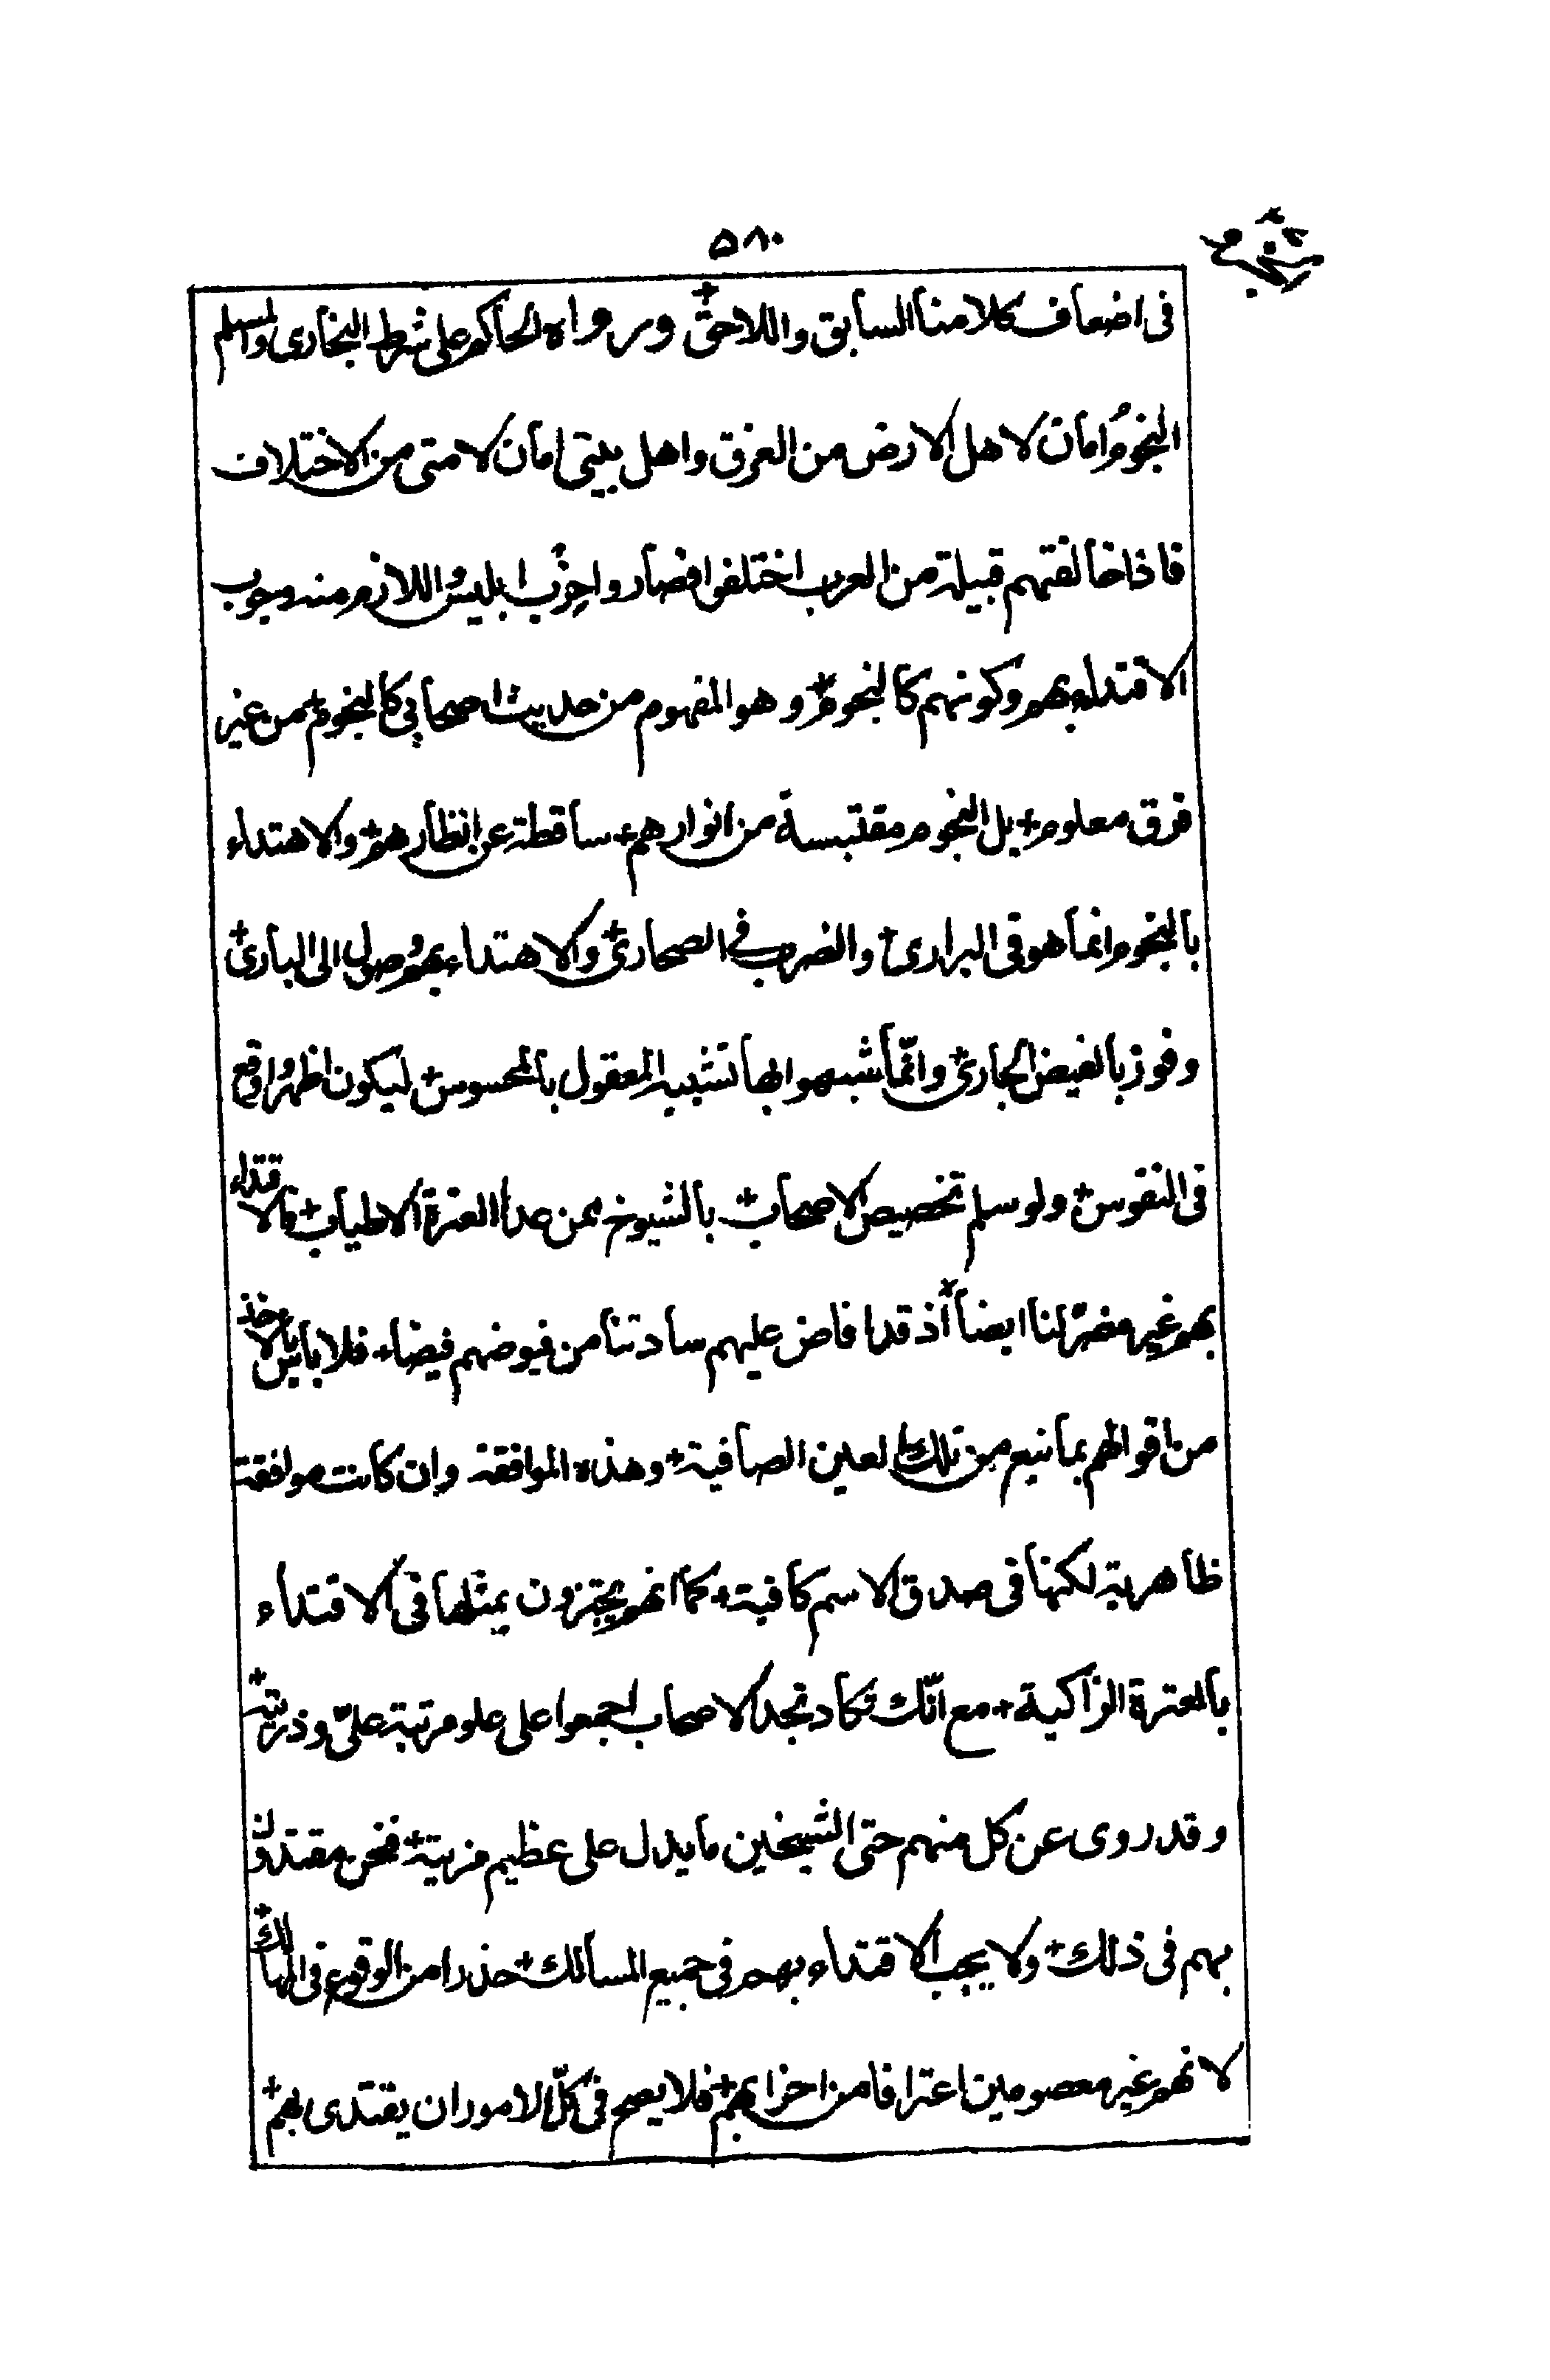 ۵۸۰
فى اضعاف كلامنا السابق واللاحق + ورواه الحاكم على شرط البخارى والمسلم
النجوم امان لاهل الارض من الغرق واهل بيتى امان لامتى من الاختلاف
فاذا خالفتهم قبيلة من العرب اختلفوا فصاروا حزب ابليس واللازم منه وجوب
الاقتداء بهم وكونهم كالنجوم + وهو المفهوم من حديث اصحابي كالنجوم + من غير
فرق معلوم + بل النجوم مقتبسة من انوارهم + ساقطة عن انظارهم + والاهتداء
بالنجوم انما هو فى البرارى + والضرب في الصحارى + والاهتداء بهم وصول الى البارى +
وفوز بالفيض الجارى + وانّما شبهوا بها تشبيه المعقول بالمحسوس + ليكون اظهر واوقع
فى النفوس + ولو سلم تخصيص الاصحاب + بالشيوخ بمن عدا العترة الاطياب + فالاقتداء
بهم غير مضرّ لنا ايضاً + اذ قد افاض عليهم سادتنا من فيوضهم فيضاً + فلا باس بالاخذ
من اقوالهم بما نبع من تلك العين الصافية + وهذه الموافقة وان كانت موافقة
ظاهرية لكنها فى صدق الاسم كافية + كما انهم يجتزون بمثلها فى الاقتداء
بالعترة الزاكية + مع انّك تكاد تجد الاصحاب اجمعوا على علو مرتبة علىّ وذريته +
وقد روى عن كل منهم حتى الشيخين ما يدل على عظيم مزيته + فنحن مقتدون
بهم فى ذلك + ولا يجب الاقتداء بهم فى جميع المسالك + حذرا من الوقوع فى المهالك +
لانهم غير معصومين اعترافا من احزابهم + فلا يصح فى كلّ الامور ان يقتدى بهم +